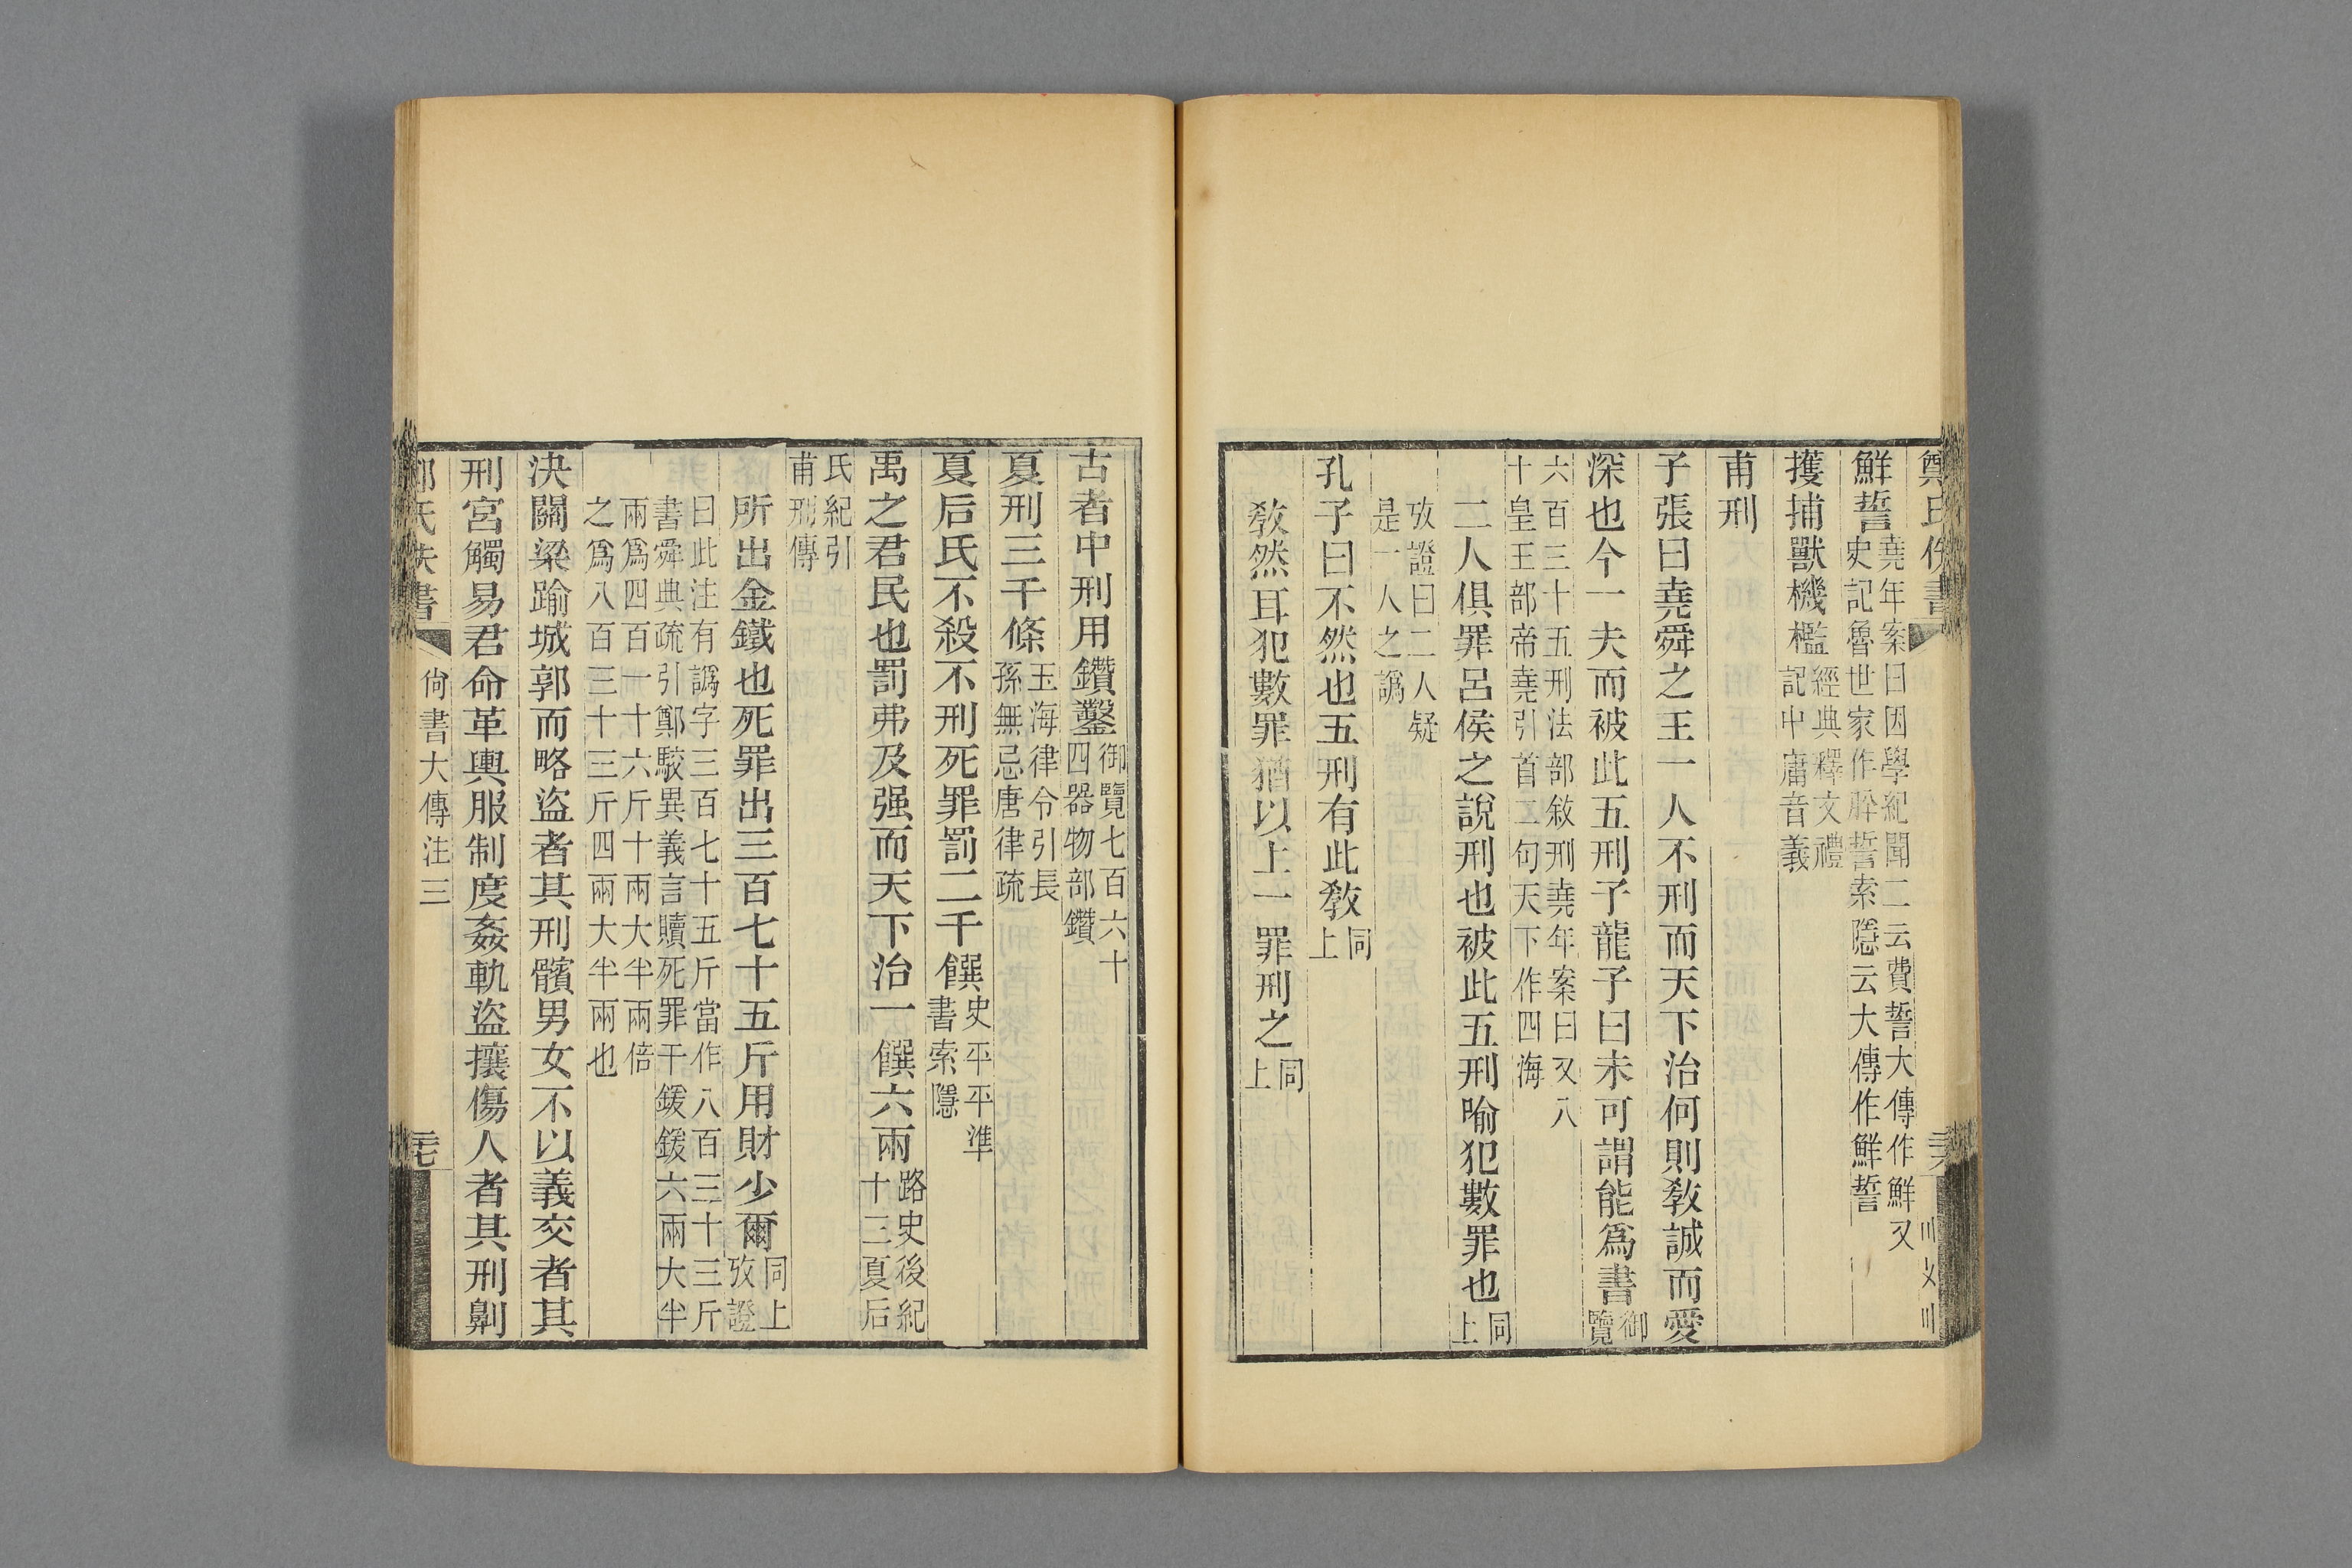 鄭氏佚書
鮮誓堯年案曰困學紀聞二云費誓大傳作鮮又
史記魯世家作肸誓索隱云大傳作鮮誓
擭捕獸機檻經典釋文禮
記中庸音義
甫刑
子張曰堯舜之王一人不刑而天下治何則敎誠而愛
深也今一夫而被此五刑子龍子曰未可謂能爲書御
覽
六百三十五刑法部敘刑堯年案曰又八
十皇王部帝堯引首二句天下作四海
二人俱罪呂侯之說刑也被此五刑喻犯數罪也同
上
攷證曰二人疑
是一人之譌
孔子曰不然也五刑有此敎同
上
敎然耳犯數罪猶以上一罪刑之同
上
古者中刑用鑽鑿御覽七百六十
四器物部鑽
夏刑三千條玉海律令引長
孫無忌唐律疏
夏后氏不殺不刑死罪罰二千饌史平平準
書索隱
禹之君民也罰弗及强而天下治一饌六兩路史後紀
十三夏后
氏紀引
甫刑傳
所出金鐵也死罪出三百七十五斤用財少爾同上
攷證
曰此注有譌字三百七十五斤當作八百三十三斤
書舜典疏引鄭駮異義言贖死罪千鍰鍰六兩大半
兩爲四百一十六斤十兩大半兩倍
之爲八百三十三斤四兩大半兩也
決關梁踰城郭而略盜者其刑髕男女不以義交者其
刑宮觸易君命革輿服制度姦軌盜攘傷人者其刑劓
鄭氏佚書
尙書大傳注三
三七